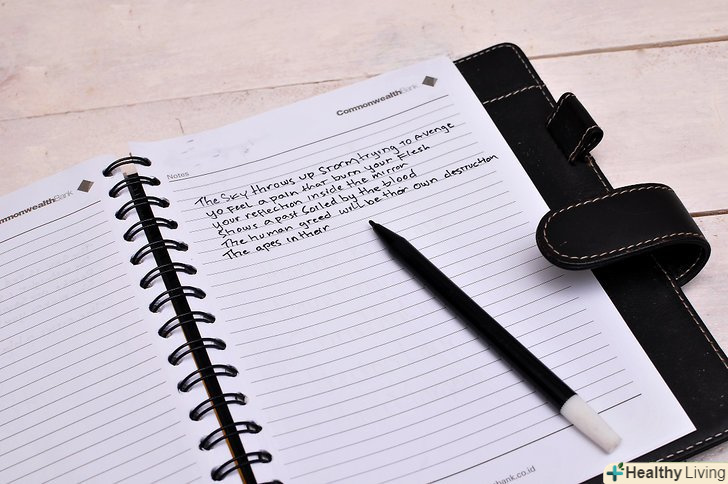 mmonwealthBank
CommonwealthBank
Notes
The Sky throws up Storm trying To Avenge
yo Feel a pain that burn your Flesh
your reflection inside the mirror
Shows a past Soiled by the blood
The human greed will be their own destruction
The apes in their
bank.co.id
Healthy Living